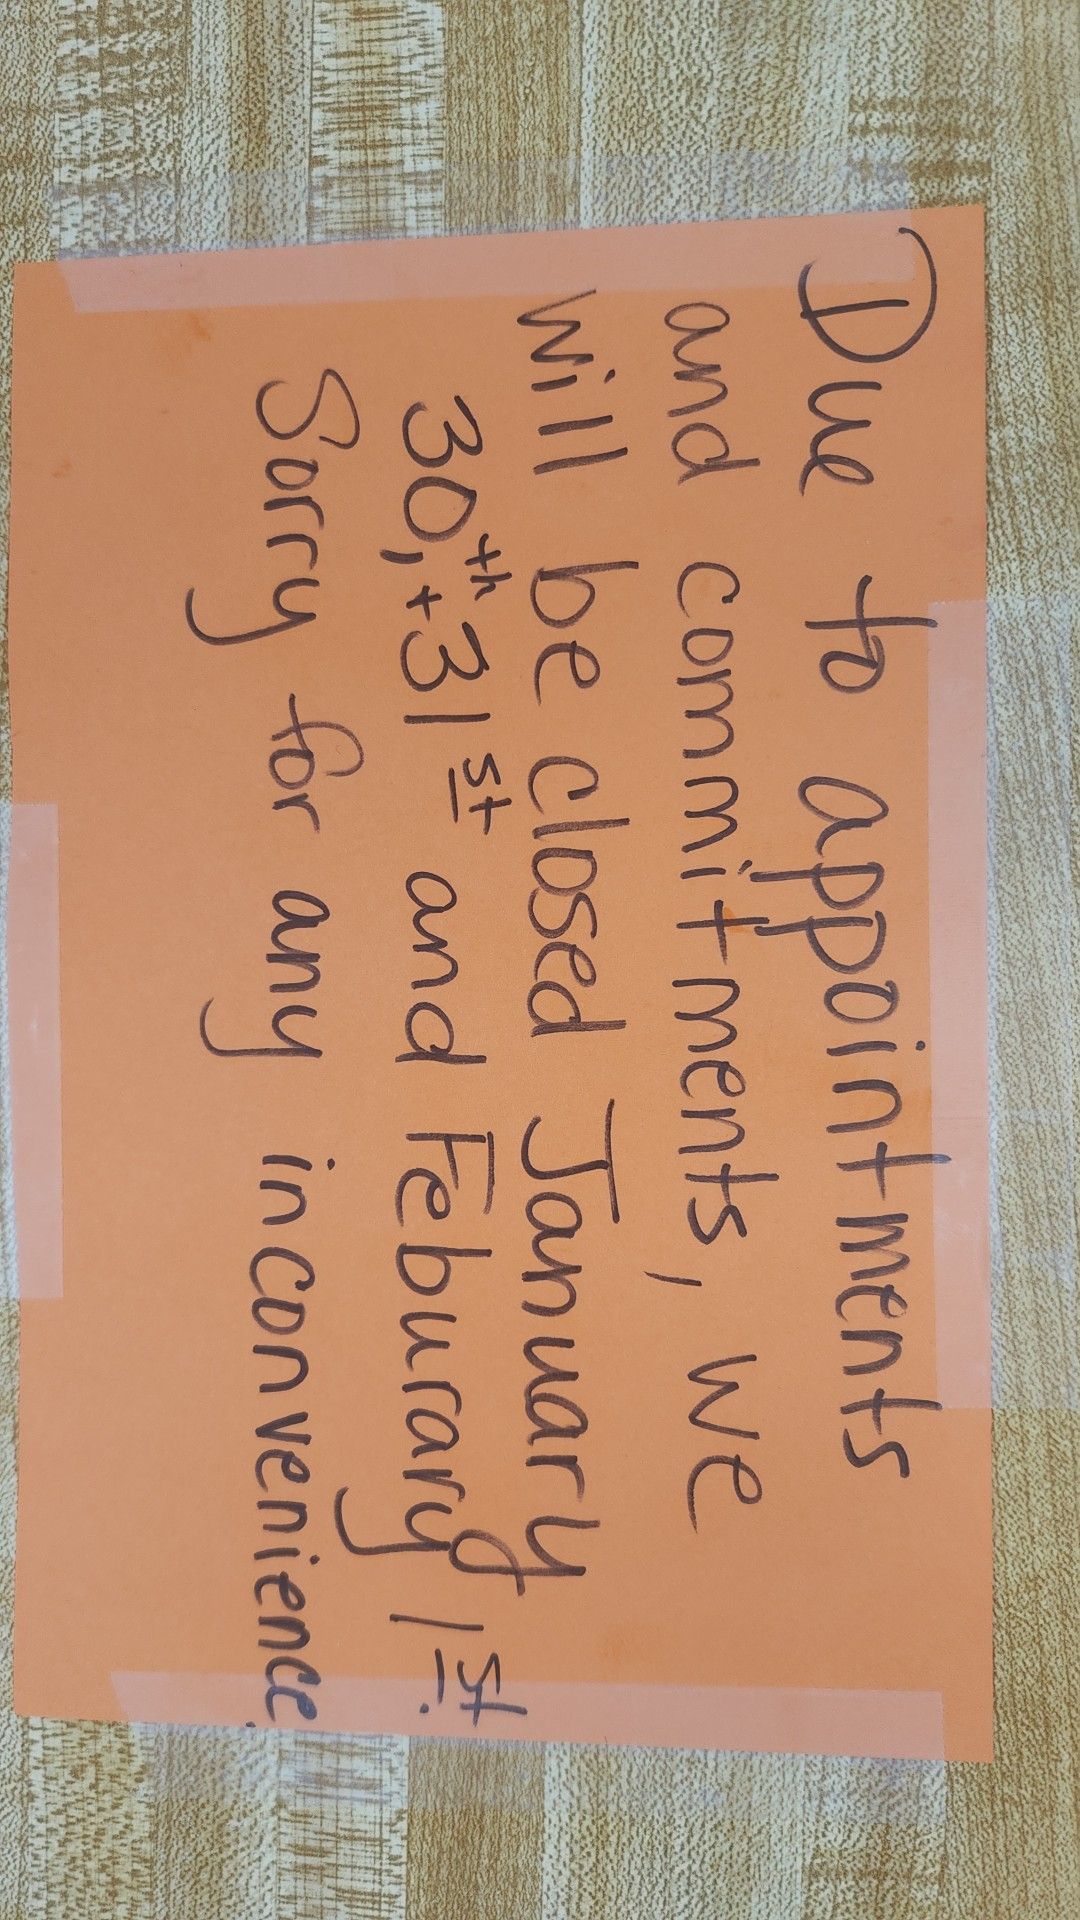 Due to appointments
and commitments, we
will be closed January
30th, + 31st and Feburary 1st.
Sorry for any inconvenience.